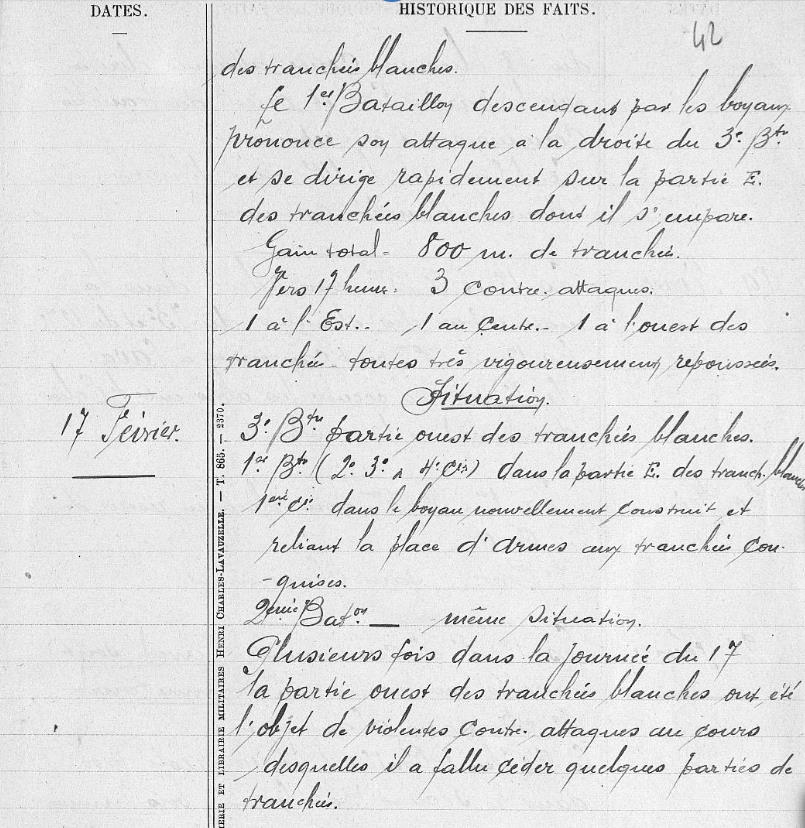 DATES.
HISTORIQUE DES FAITS.
42
des tranchées blanches.
Le 1er Bataillon descendant par les boyaux
prononce son attaque à la droite du 3e Bton
et se dirige rapidement sur la partie E.
des tranchées blanches dont il s'empare.
Gain total - 800 m. de tranchée.
Vers 17 heures. 3 contre-attaques.
1 à l'Est.- 1 au centre.- 1 à l'ouest des
tranchées - toutes très vigoureusement repoussées.
Situation.
17 Février.
3e Bton partie ouest des tranchées blanches.
1er Bton (2e 3e 4e Cies) dans la partie E. des tranch. blanches
1ère Cie dans le boyau nouvellement construit et
reliant la place d'Armes aux tranchées con-
-quises.
2ème Baton — même situation.
Plusieurs fois dans la journée du 17
la partie ouest des tranchées blanches ont été
l'objet de violentes contre-attaques au cours
desquelles il a fallu céder quelques parties de
tranchées.
ERIE ET LIBRAIRIE MILITAIRES HENRI CHARLES-LAVAUZELLE. — T. 865. — 2370.